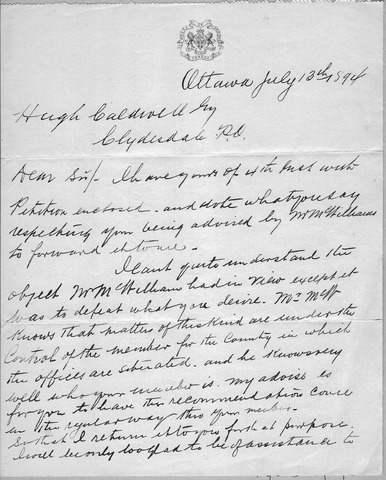 Ottawa July 13th 1894
Hugh Caldwell Esq
Clydesdale P.O.
Dear Sir/- I have yours of 11th Inst with
Petition enclosed. and note what you say
respecting your being advised by Mr McWilliams
to forward it to me.
I cant quite understand the
object Mr McWilliam had in view except it
was to defeat what you desire. Mr McW
knows that matters of this kind are under the
control of the member for the County in which
the offices are situated. and he knows very
well who your member is. My advise is
for you to have the recommendation come
in the regular way thro your member.
So that I return it to you for that purpose.
I will be only too glad to be of assistance to